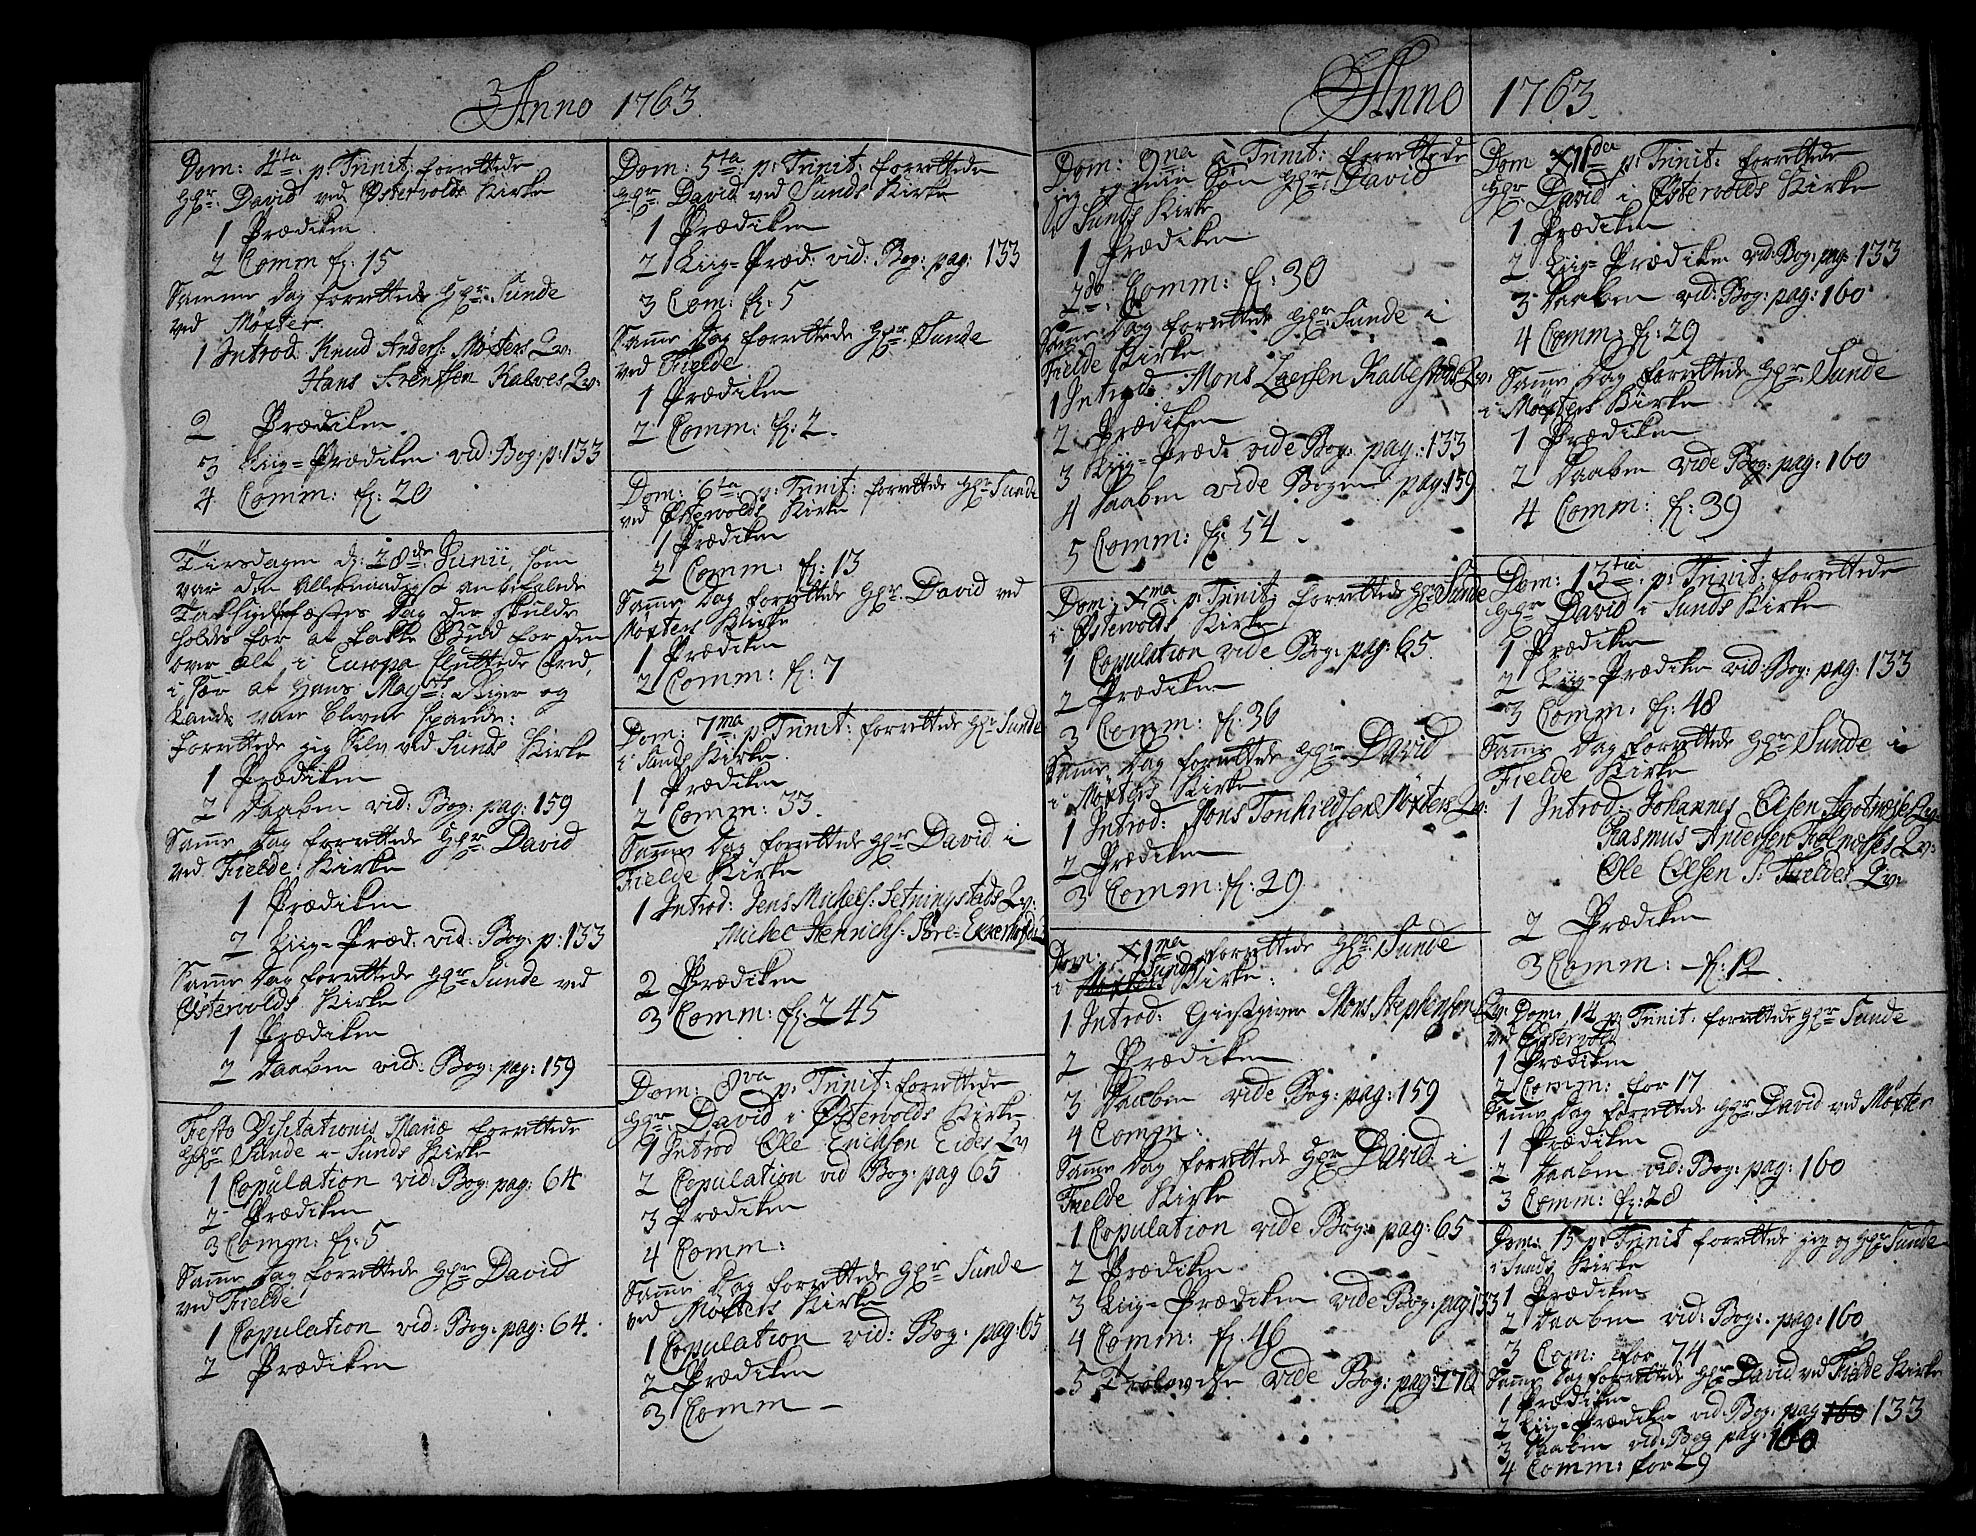 Anno 1763
Dom: 4ta p: Trinit: forrettede
Hr: David ved Østervolds Kirke
1 Prædiken
2 Comm f: 15
Samme Dag forrettede Hr: Sunde
ved Møxter
1 Introd Knud Anders: Møxters Qv:
Hans Frentsen Kalves Qv:
2 Prædiken
3 Liig-Prædiken vid: Bog: p: 133
4 Comm: f: 20
Tirsdagen d: 28de Junii, som
var den Allernaadigst anbefalede
Taksigelsesfæstes Dag der skulde
holdes for at takke Gud for den
over alt i Europa sluttede Fred,
i sær at Hans Mayts Riger og
Lande vare blevne sparede:
forrettede jeg selv ved Sunds Kirke
1 Prædiken
2 Daaben vid: Bog: pag: 159
Samme Dag forrettede Hr: David
ved Fielde Kirke
1 Prædiken
2 Liig-Præd: vid: Bog: p: 133
Samme Dag forrettede Hr: Sunde ved
Østervolds Kirke
1 Prædiken
2 Daaben vid: Bog: pag: 159
Festo Visitationis Mariæ forrettede
Hr: Sunde i Sunds Kirke
1 Copulation vid: Bog: pag: 64
2 Prædiken
3 Comm: f: 5
Samme Dag forrettede Hr: David
ved Fielde
1 Copulation vid: Bog: pag: 64.
2 Prædiken
Dom: 5ta p: Trinit: forrettede
Hr: David ved Sunds Kirke
1 Prædiken
2 Liig-Præd: vid: Bog: pag: 133
3 Com: f: 5
Samme Dag forrettede Hr: Sunde
ved Fielde
1 Prædiken
2 Comm: f: 2.
Dom: 6ta p: Trinit: forrettede Hr: Sunde
ved Østervolds Kirke
1 Prædiken
2 Comm: f: 13
Samme Dag forrettede Hr: David ved
Møxters Kirke
1 Prædiken
2 Comm: f: 7
Dom: 7ma p Trinit: forrettede Hr Sunde
i Sunds Kirke.
1 Prædiken
2 Comm: 33.
Samme Dag forrettede Hr David i
Fielde Kirke
1 Introd: Jens Michels: Setningstads Qv:
Michel Henrichs: Støre-
2 Prædiken
3 Comm: f: 245
Dom: 8va p: Trinit: forrettede
Hr: David i Østervolds Kirke
1 Introd Ole Erichsen Eides Qv
2 Copulation vid Bog: pag 65
3 Prædiken
4 Comm:
Samme Dag forrettede Hr: Sunde
ved Møxters Kirke
1 Copulation vid: Bog: pag: 65
2 Prædiken
3 Comm –
Anno 1763.
Dom: 9na à Trinit: forrettede
jeg og min Søn Hr: David
i Sunds Kirke
1 Prædiken
2do Comm: f: 30
Samme Dag forrettede Hr: Sunde i
Fielde Kirke
1 Introd: Mons Laersen Kallestads Qv:
2 Prædiken
3 Liig-Præd: vide Bog: pag: 133
4 Daaben vide Bogen pag: 159
5 Comm: f: 54
Dom: Xma p: Trinit: forrettede Hr: Sunde
i Østervolds Kirke
1 Copulation vide Bog: pag: 65.
2 Prædiken
3 Comm: f: 36
Samme Dag forrettede Hr: David
i Møxters Kirke
1 Introd: Mons Tonhildsen Møxters Qv:
2 Prædiken
3 Comm: f: 29
Dom: X1ma forrettede Hr: Sunde
i Sunds Kirke:
1 Introd: Giestgiver Mons Stephensens Qv:
2 Prædiken
3 Daaben vide Bog: pag: 159
4 Comm:
Samme Dag forrettede Hr: David i
Fielde Kirke
1 Copulation vide Bog: pag: 65
2 Prædiken
3 Liig-Prædiken vide Bog: pag 133
4 Comm: f: 46
5 Trolovelse vide Bog: pag:
Dom X11da p: Trinit: forrettede
Hr: David i Østervolds Kirke
1 Prædiken
2 Liig-Prædiken vid: Bog: pag: 133
3 Daaben vid: Bog: pag: 160
4 Comm: f: 29
Samme Dag forrettede Hr: Sunde
i Møxters Kirke
1 Prædiken
2 Daaben vide Bog: pag: 160
4 Comm: f: 39
Dom: 13tia p: Trinit: forrettede
Hr: David i Sunds Kirke
1 Prædiken
2 Liig-Prædiken vid: Bog: pag: 133
3 Comm: f: 48
Samme Dag forrettede Hr: Sunde i
Fielde Kirke
1 Introd: Johannes Olsen Qv:
Rasmus Andersen Qv:
Ole Olsen S: Fieldes Qv:
2 Prædiken
3 Comm: – f: 12
Dom: 14 p: Trinit: forrettede Hr: Sunde
ved Østervold
1 Prædiken
2 Comm: for 17
Samme Dag forrettede Hr: David ved Møxter
1 Prædiken
2 Daaben vid: Bog: pag: 160
3 Comm: f: 28
Dom: 15 p: Trinit forrettede jeg og Hr: Sunde
i Sunds Kirke
1 Prædiken
2 Daaben vid: Bog: pag: 160
3 Com: for 74
Samme Dag forrettede Hr: David ved Fielde Kirke
1 Prædiken
2 Liig-Prædiken vid: Bog: pag 160 133
3 Daaben vid: Bog pag: 160
4 Comm: for 29